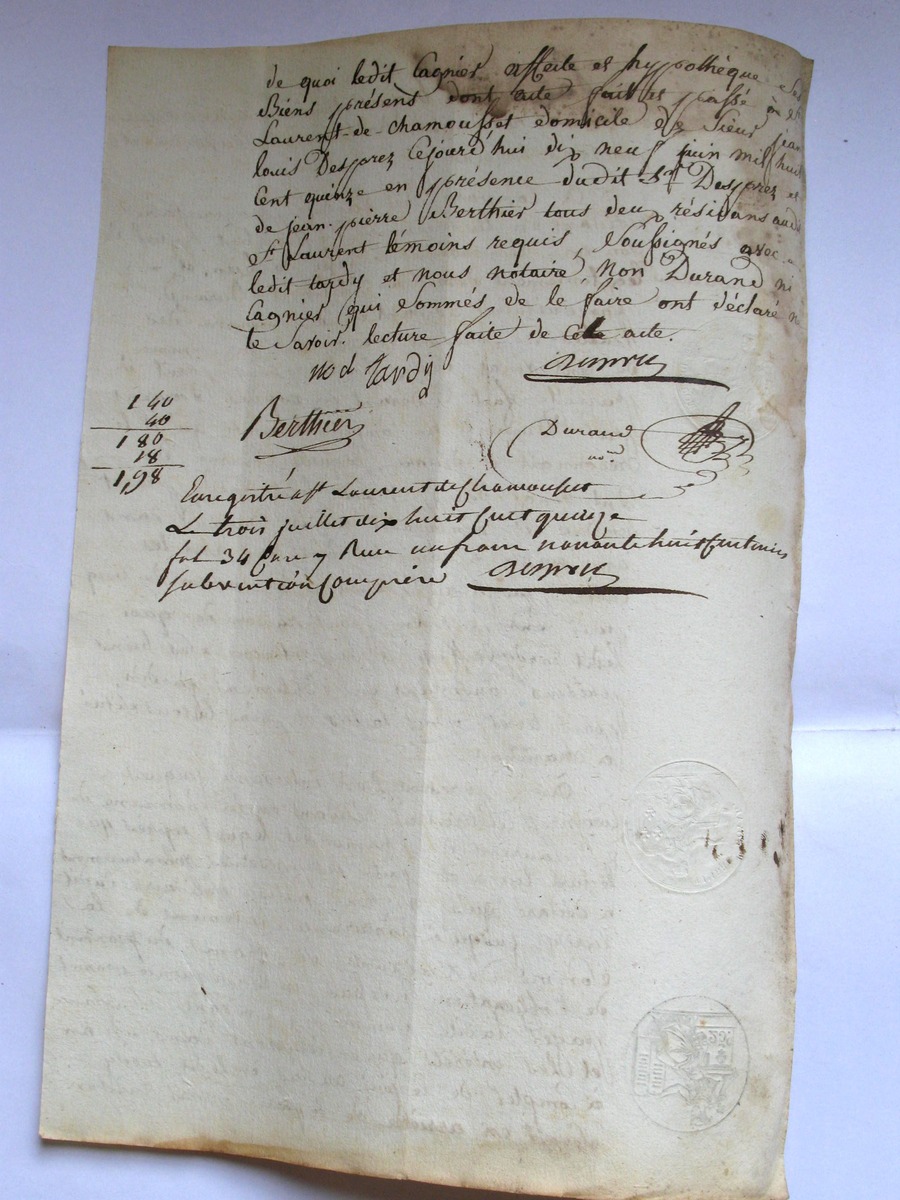 de quoi ledit Cagnier affecte et hypothéque ses
Biens présens dont acte fait et passé à st
Laurent-de-chamousset domicile de sieur jean
louis Desprez cejourd'hui dix neuf juin mil huit
cent quinze en présence dudit Sr Desprez et
de jean-pierre Berthier tous deux résidans audi
st Laurent témoins requis, soussignés avec
ledit tardy et nous notaire, Non Durand ni
Cagnier qui sommés de le faire ont déclaré ne
le savoir. lecture faite de cet acte.
Tardy
140
40
180
18
1,98
Berthier
Durand
no.re
Enregistré a st Laurent de Chamousset
Le trois juillet dix huit cent quinze
fol 34 Case 7 Recu un franc nonante huit centimes
subvention comprise